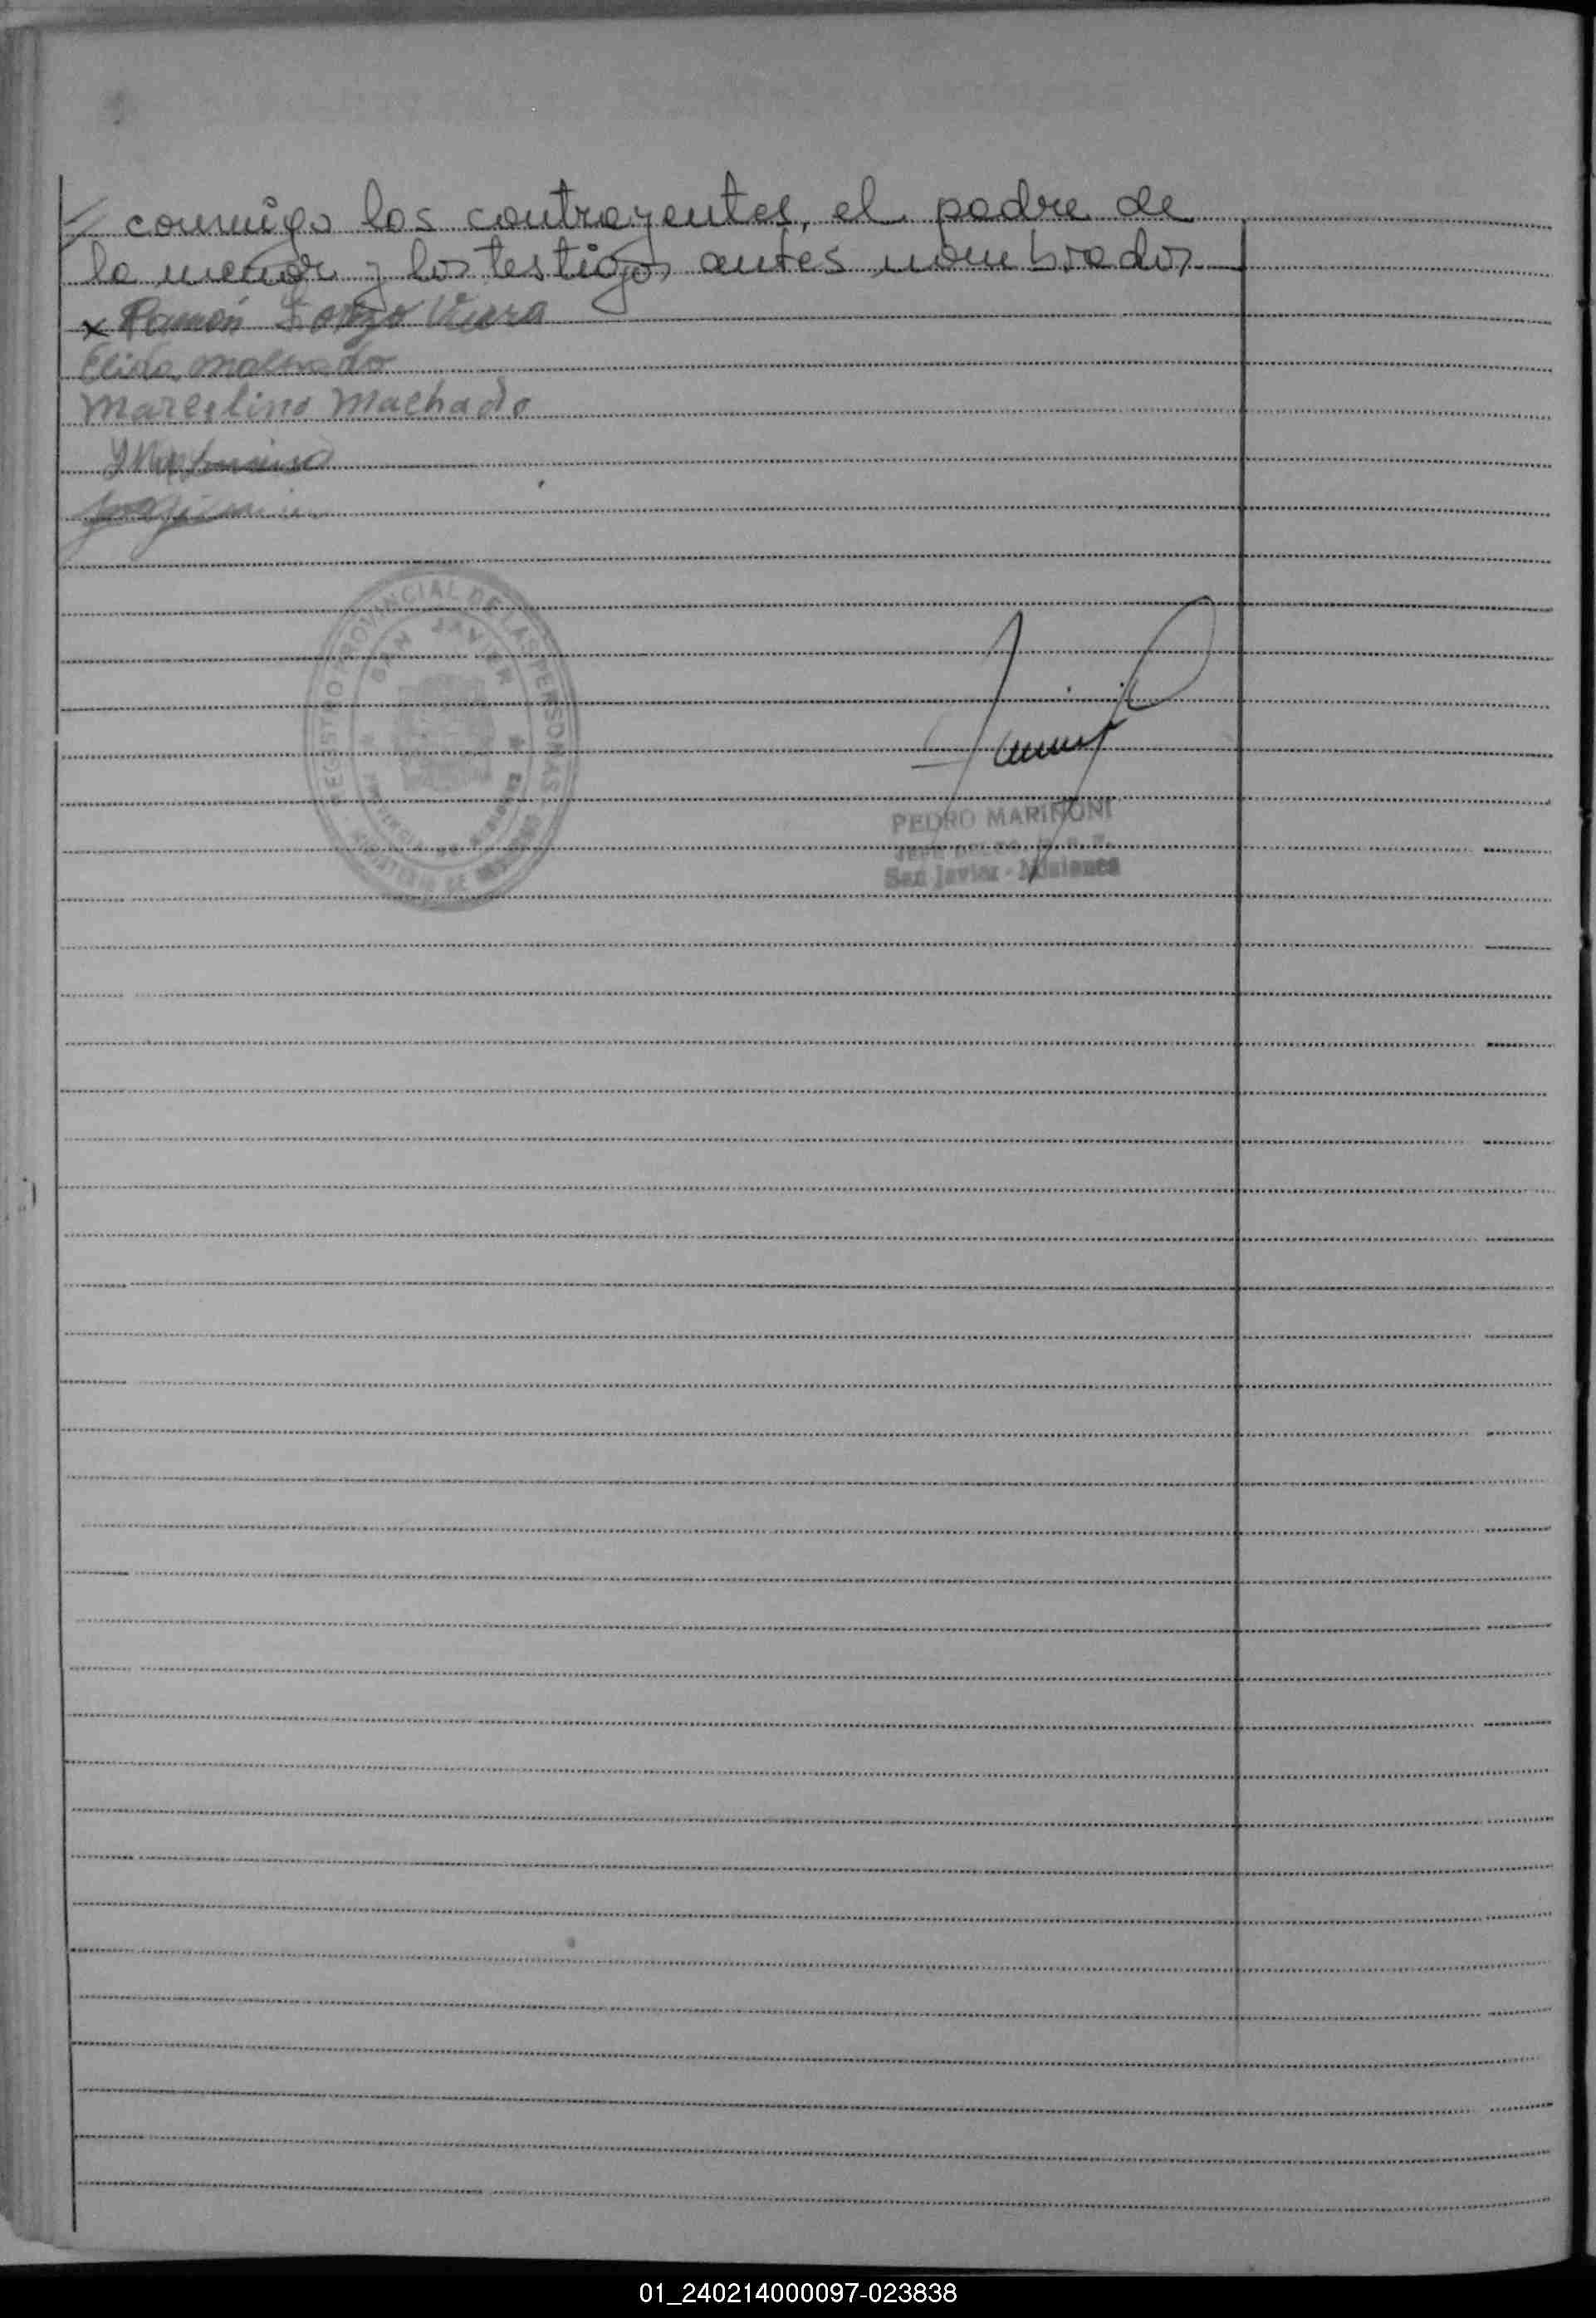 // conmigo los contrayentes, el padre de
la menor y los testigos antes nombrados.
x Ramón Viera
Elida Machado
Marcelino Machado
REGISTRO PROVINCIAL DE LAS PERSONAS
SAN JAVIER
PROVINCIA DE MISIONES
PEDRO MARIÑONI
San Javier - Misiones
01_240214000097-023838